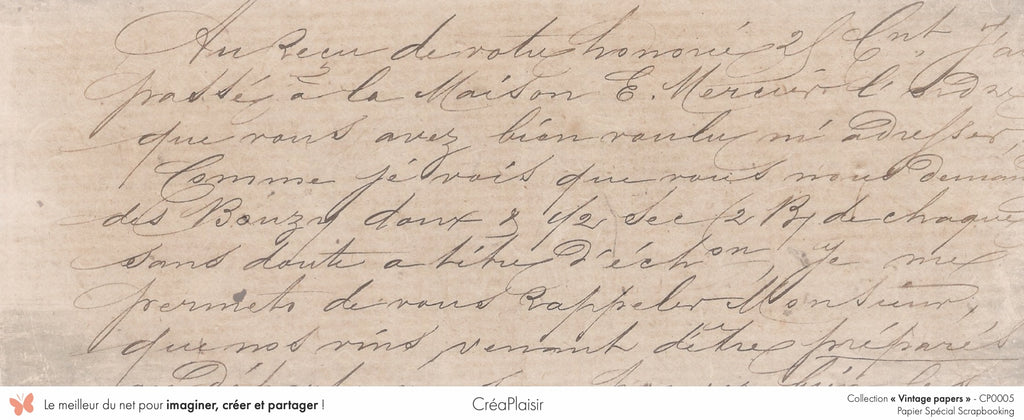 Au Reçu de votre honorée 25 Cnt. J'ai
passé à la Maison E. Mercier l'ordre
que vous avez bien voulu m'adresser,
Comme je vois que vous nous deman
des Bouzy doux & 1/2 sec (2 Bs de chaque
sans doute a titre d'échon, Je me
permets de vous rappeler Monsieur,
que nos vins venant d'être préparés
Le meilleur du net pour imaginer, créer et partager !
CréaPlaisir
Collection « Vintage papers » - CP0005
Papier Spécial Scrapbooking